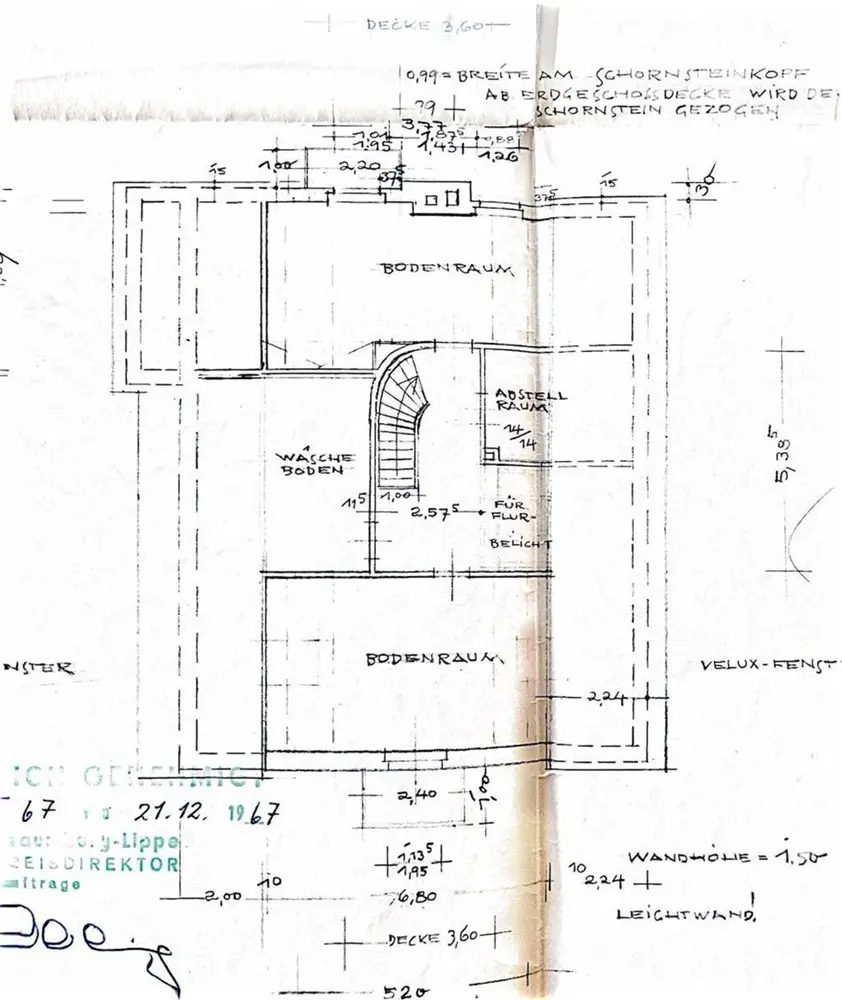 DECKE 3,60
0,99 = BREITE AM SCHORNSTEINKOPF
AB ERDGESCHOSSDECKE WIRD DE
SCHORNSTEIN GEZOGEN
99
3,77
1,01 1,87⁵ 0,88⁵
1,95 1,43 1,26
1,00 2,20
37⁵
15
37⁵
15
30
BODENRAUM
ABSTELL
RAUM
14/14
WÄSCHE
BODEN
5,38⁵
11⁵
1,00
2,57⁵
FÜR
FLUR-
BELICHT
NSTER
BODENRAUM
VELUX-FENST
2,24
ICH GENEHMIGT
67 21.12. 1967
g-Lippe
REISDIREKTOR
uftrage
2,40
1,00
1,13⁵
1,95
WANDHÖHE = 1,50
2,00
10
6,80
10
2,24
LEICHTWAND!
DECKE 3,60
520